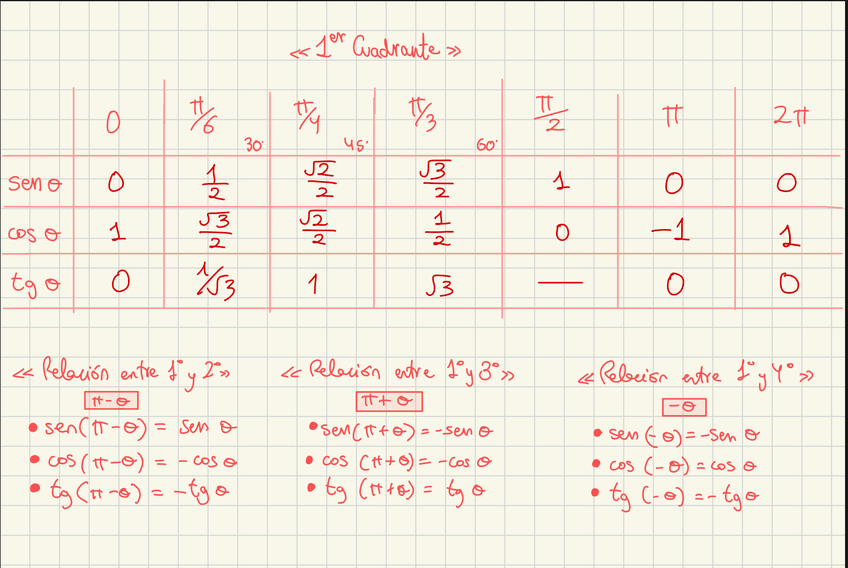 « 1er Cuadrante »
0 π/6 30° π/4 45° π/3 60° π/2 π 2π
sen θ 0 1/2 √2/2 √3/2 1 0 0
cos θ 1 √3/2 √2/2 1/2 0 -1 1
tg θ 0 1/√3 1 √3 — 0 0
« Relación entre 1° y 2° »
π-θ
• sen(π-θ) = sen θ
• cos(π-θ) = -cos θ
• tg(π-θ) = -tg θ
« Relación entre 1° y 3° »
π+θ
• sen(π+θ) = -sen θ
• cos (π+θ) = -cos θ
• tg (π+θ) = tg θ
« Relación entre 1° y 4° »
-θ
• sen (-θ) = -sen θ
• cos (-θ) = cos θ
• tg (-θ) = -tg θ